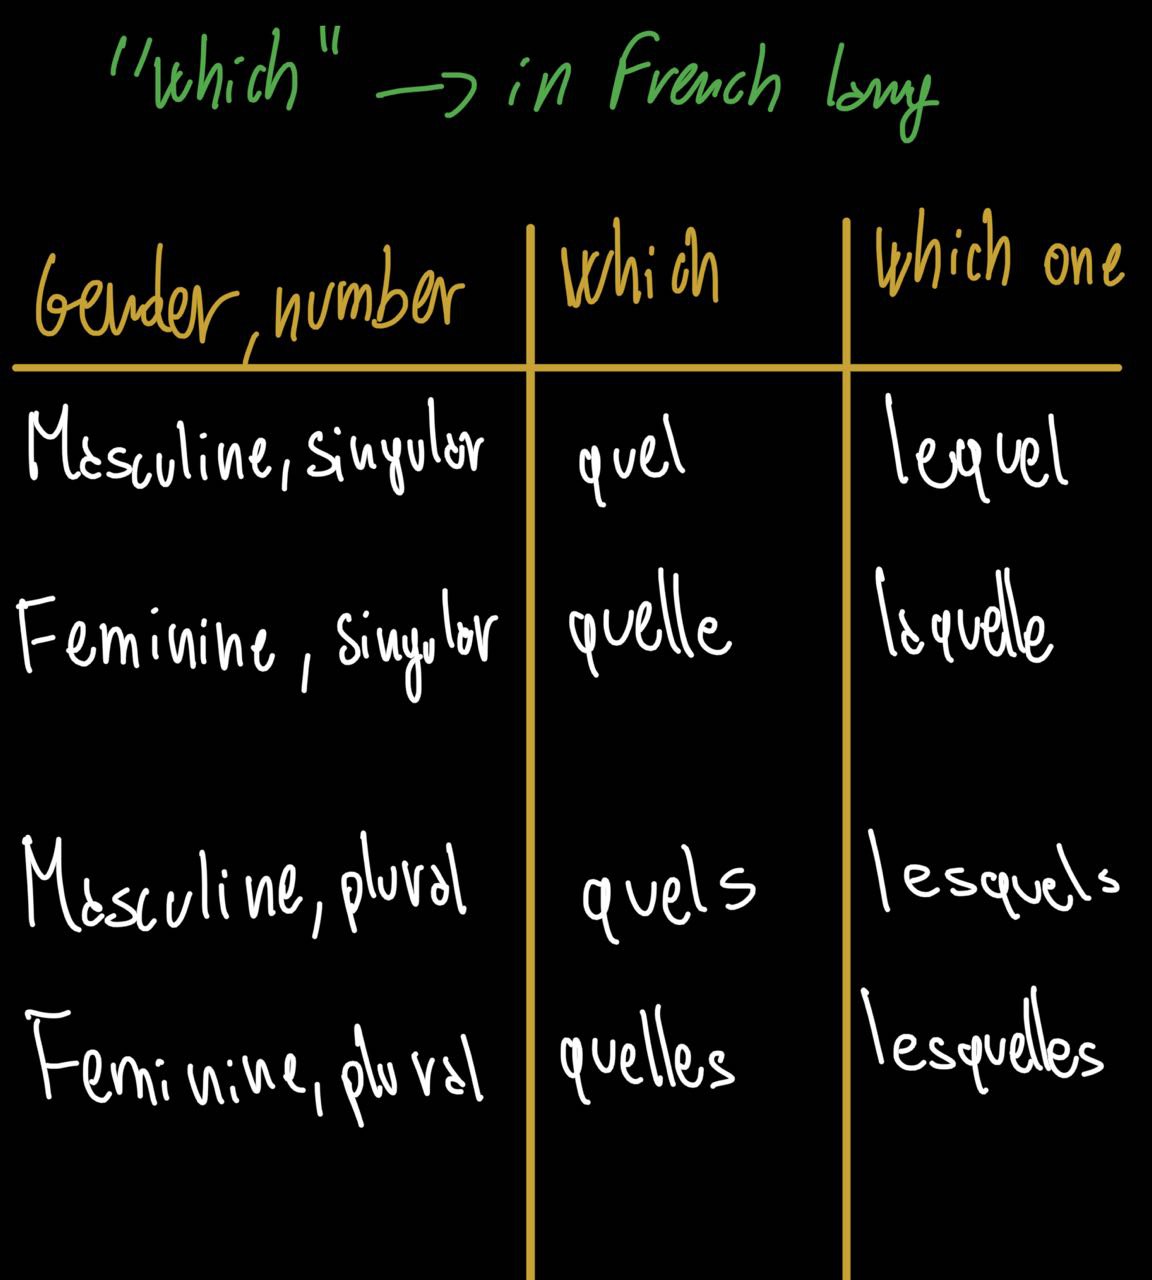 "which" → in French lang
Gender, number which which one
Masculine, singular quel lequel
Feminine, singular quelle laquelle
Masculine, plural quels lesquels
Feminine, plural quelles lesquelles